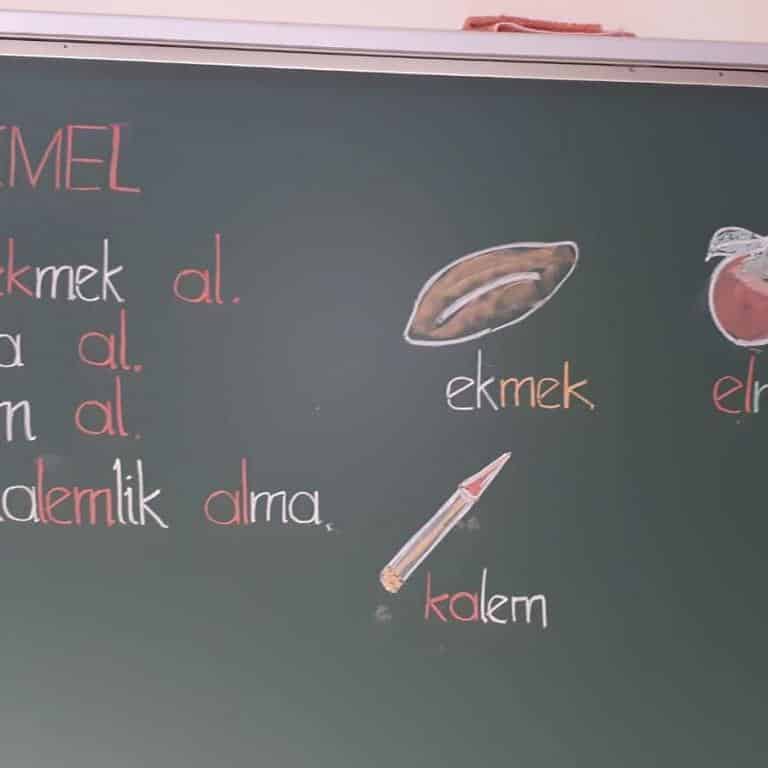 MEL
ekmek al.
al.
al.
kalemlik alma.
ekmek
kalem